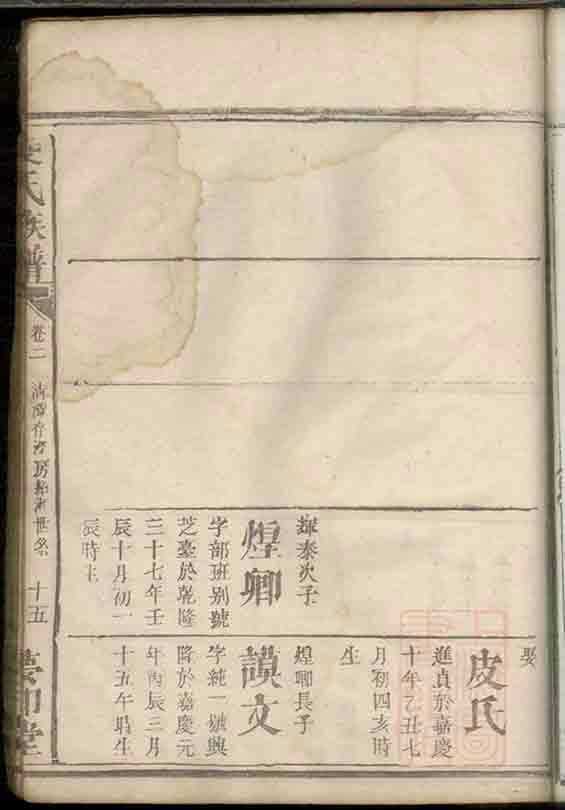 輝泰次子
煌卿
字部班别號
芝臺於乾隆
三十七年壬
辰十月初一
辰時生
娶
皮氏
進貞於嘉慶
十年乙丑七
月初四亥時
生
煌卿長子
謨文
字純一號興
隆於嘉慶元
年丙辰三月
十五午時生
氏族譜
卷二
房
世系
十五
堂